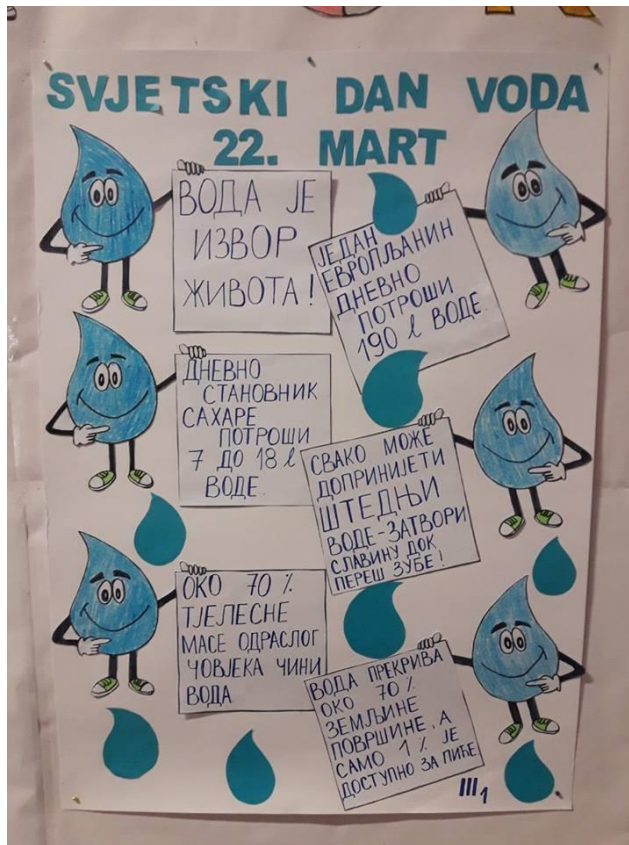 SVJETSKI DAN VODA
22. MART
ВОДА ЈЕ
ИЗВОР
ЖИВОТА!
ЈЕДАН
ЕВРОПЉАНИН
ДНЕВНО
ПОТРОШИ
190 l ВОДЕ.
ДНЕВНО
СТАНОВНИК
САХАРЕ
ПОТРОШИ
7 ДО 18 l
ВОДЕ.
СВАКО МОЖЕ
ДОПРИНИЈЕТИ
ШТЕДЊИ
ВОДЕ-ЗАТВОРИ
СЛАВИНУ ДОК
ПЕРЕШ ЗУБЕ!
ОКО 70 %
ТЈЕЛЕСНЕ
МАСЕ ОДРАСЛОГ
ЧОВЈЕКА ЧИНИ
ВОДА
ВОДА ПРЕКРИВА
ОКО 70 %
ЗЕМЉИНЕ
ПОВРШИНЕ, А
САМО 1 % ЈЕ
ДОСТУПНО ЗА ПИЋЕ
III 1